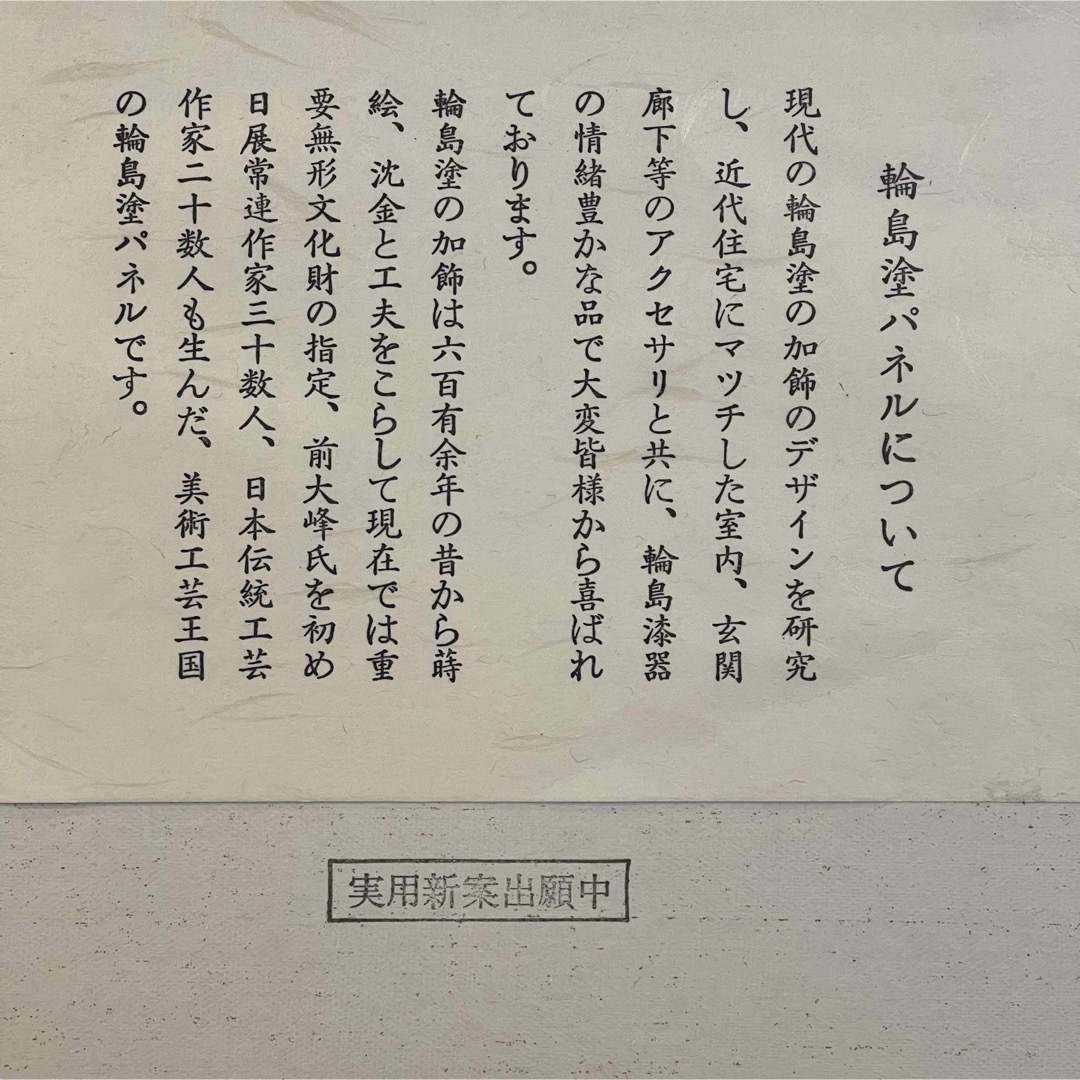 輪島塗パネルについて
現代の輪島塗の加飾のデザインを研究
し、近代住宅にマツチした室内、玄関
廊下等のアクセサリと共に、輪島漆器
の情緒豊かな品で大変皆様から喜ばれ
ております。
輪島塗の加飾は六百有余年の昔から蒔
絵、沈金と工夫をこらして現在では重
要無形文化財の指定、前大峰氏を初め
日展常連作家三十数人、日本伝統工芸
作家二十数人も生んだ、美術工芸王国
の輪島塗パネルです。
実用新案出願中